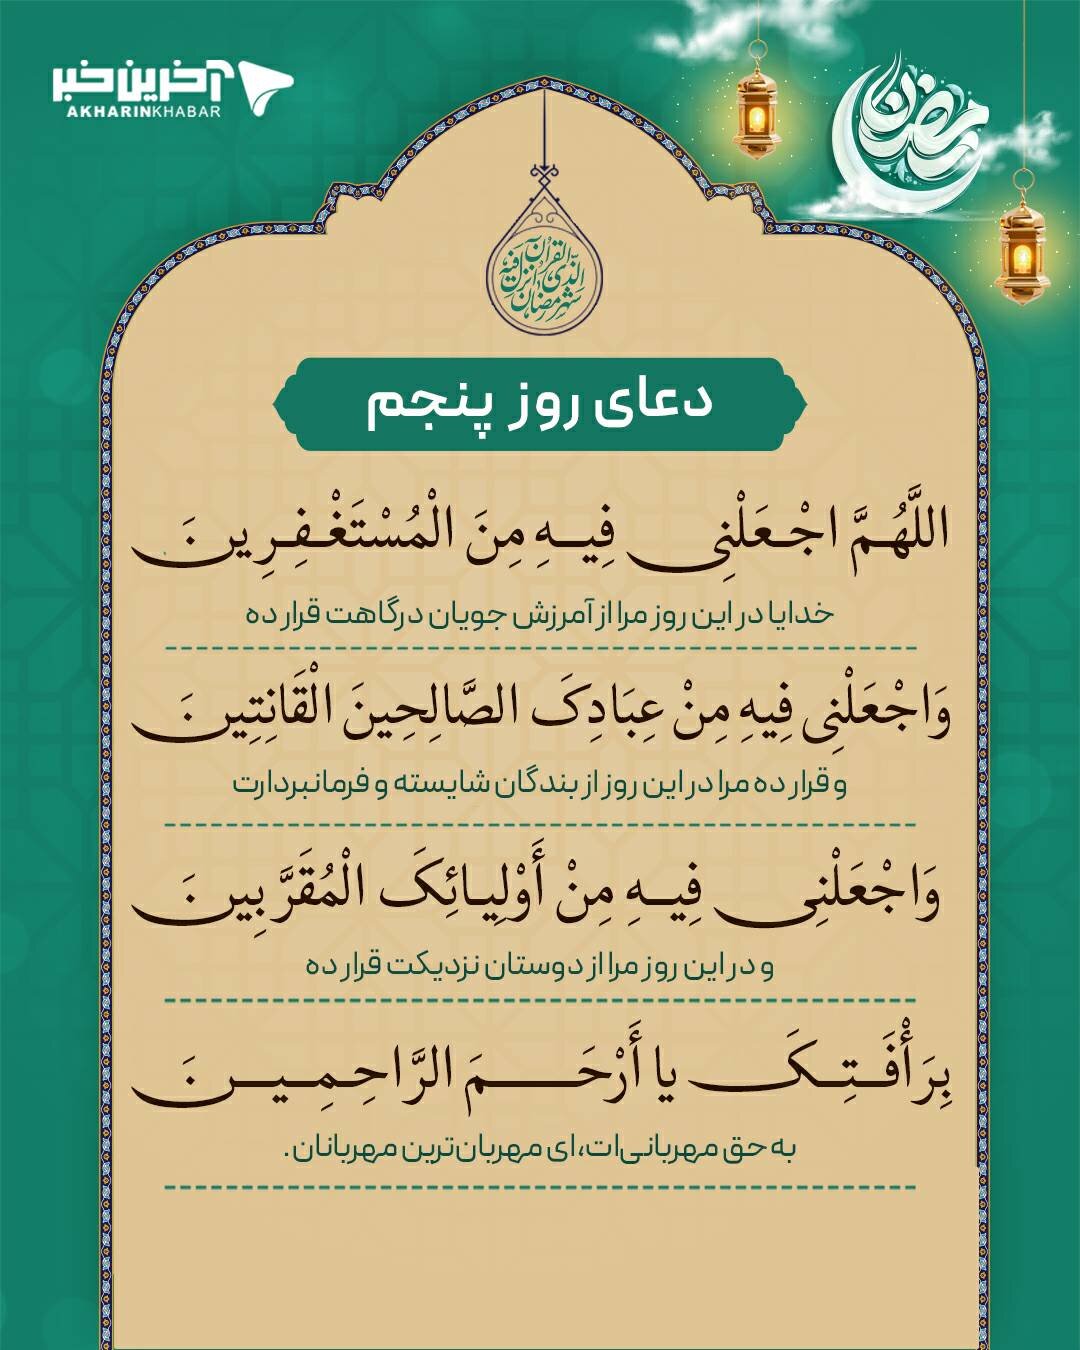 آخرین خبر
AKHARINKHABAR
رمضان
شهر رمضان الذی انزل فیه القرآن
دعای روز پنجم
اللَّهُمَّ اجْعَلْنِی فِیهِ مِنَ الْمُسْتَغْفِرِینَ
خدایا در این روز مرا از آمرزش جویان درگاهت قرار ده
وَاجْعَلْنِی فِیهِ مِنْ عِبَادِکَ الصَّالِحِینَ الْقَانِتِینَ
و قرار ده مرا در این روز از بندگان شایسته و فرمانبردارت
وَاجْعَلْنِی فِیهِ مِنْ أَوْلِیائِکَ الْمُقَرَّبِینَ
و در این روز مرا از دوستان نزدیکت قرار ده
بِرَأْفَتِکَ یا أَرْحَمَ الرَّاحِمِینَ
به حق مهربانی‌ات، ای مهربان‌ترین مهربانان.